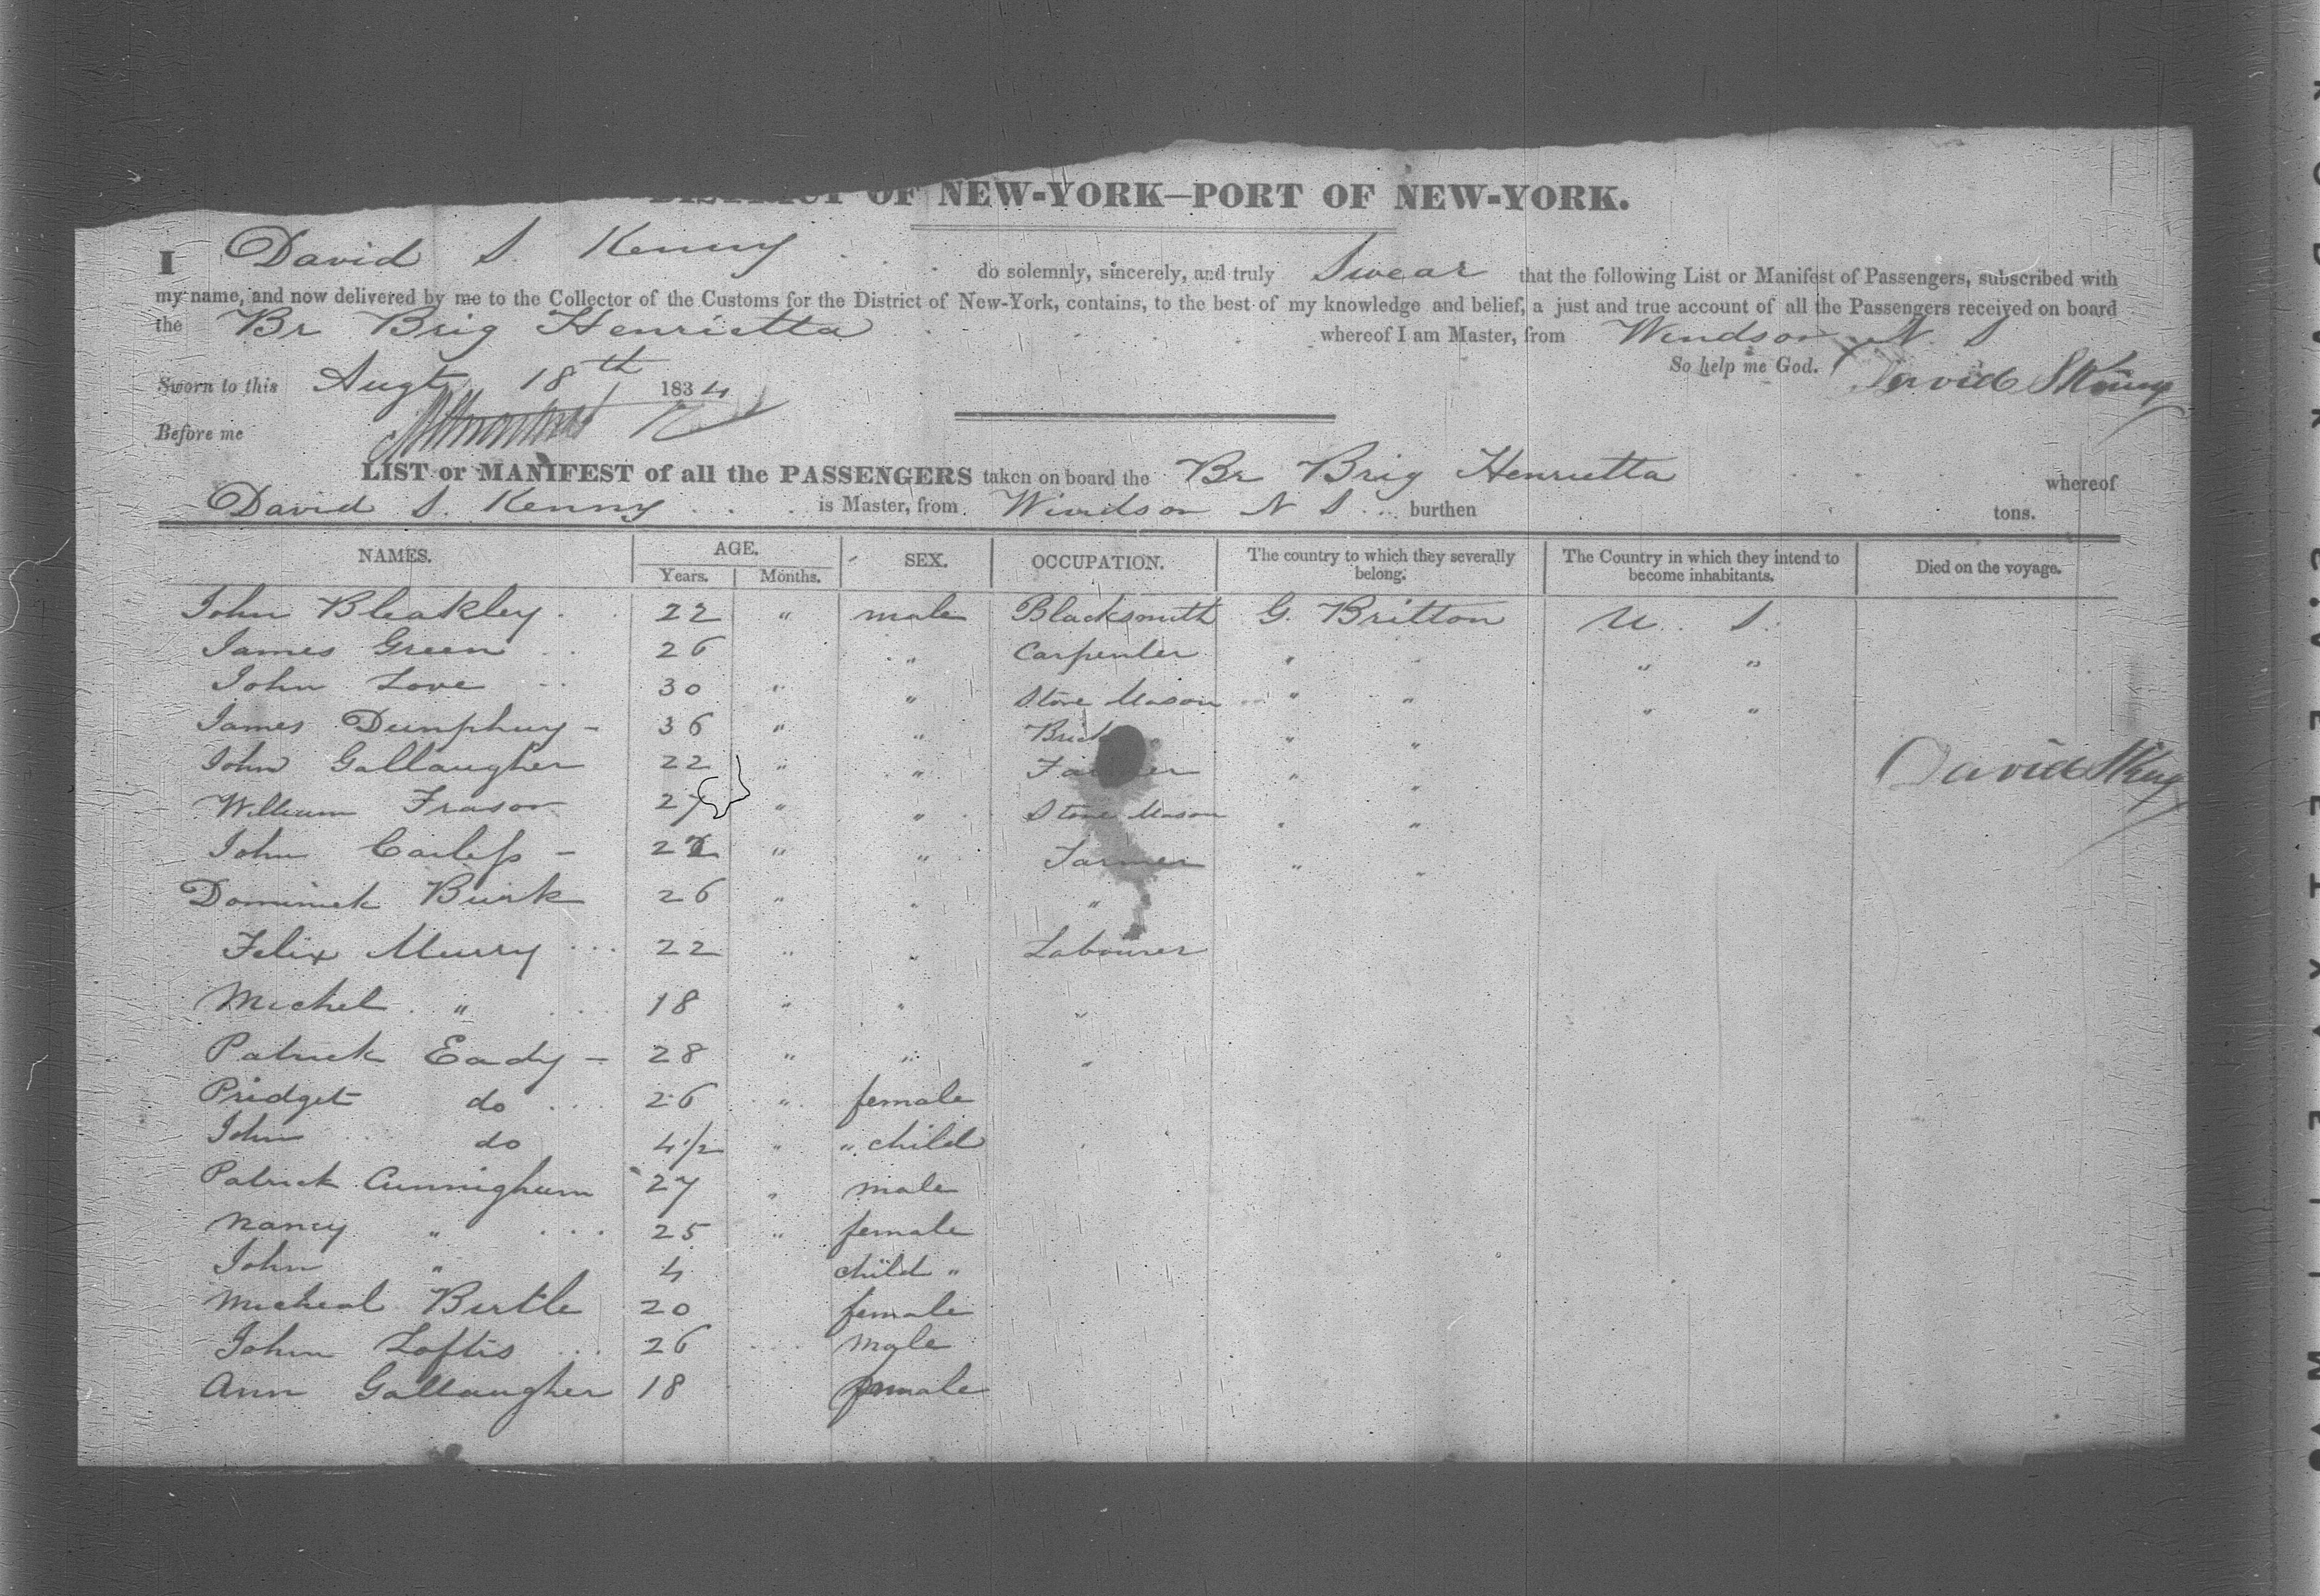 DISTRICT OF NEW-YORK—PORT OF NEW-YORK.
I David S. Kenny do solemnly, sincerely, and truly Swear that the following List or Manifest of Passengers, subscribed with
my name, and now delivered by me to the Collector of the Customs for the District of New-York, contains, to the best of my knowledge and belief, a just and true account of all the Passengers received on board
the Br Brig Henrietta whereof I am Master, from Windsor N. S
So help me God. David S Kenny
Sworn to this Augt 18th 1834
Before me
LIST or MANIFEST of all the PASSENGERS taken on board the Br Brig Henrietta whereof
David S. Kenny is Master, from Windsor N S burthen tons.
NAMES. AGE. Years. Months. SEX. OCCUPATION. The country to which they severally belong. The Country in which they intend to become inhabitants. Died on the voyage.
John Bleakley 22 " male Blacksmith G. Britton U. S.
James Green 26 " Carpenter " " "
John Love 30 " " Stone Mason " " " "
James Dunphuy - 36 " " " "
John Gallaugher 22 " " Farmer " " David S Kenny
William Frasor 27 " " Stone Mason " "
John - 22 " " Farmer " "
Dominick Burk 26 " " "
Felix Murry 22 " " Labourer
Michel " 18 " " "
Patrick Eady - 28 " " "
Pridget do 26 " female
John do 4 1/2 " " child
Patrick Cunnighum 27 " male
Nancy " 25 " female
John " 4 child "
Micheal Birtle 20 female
John Loftis 26 male
Ann Gallaugher 18 female